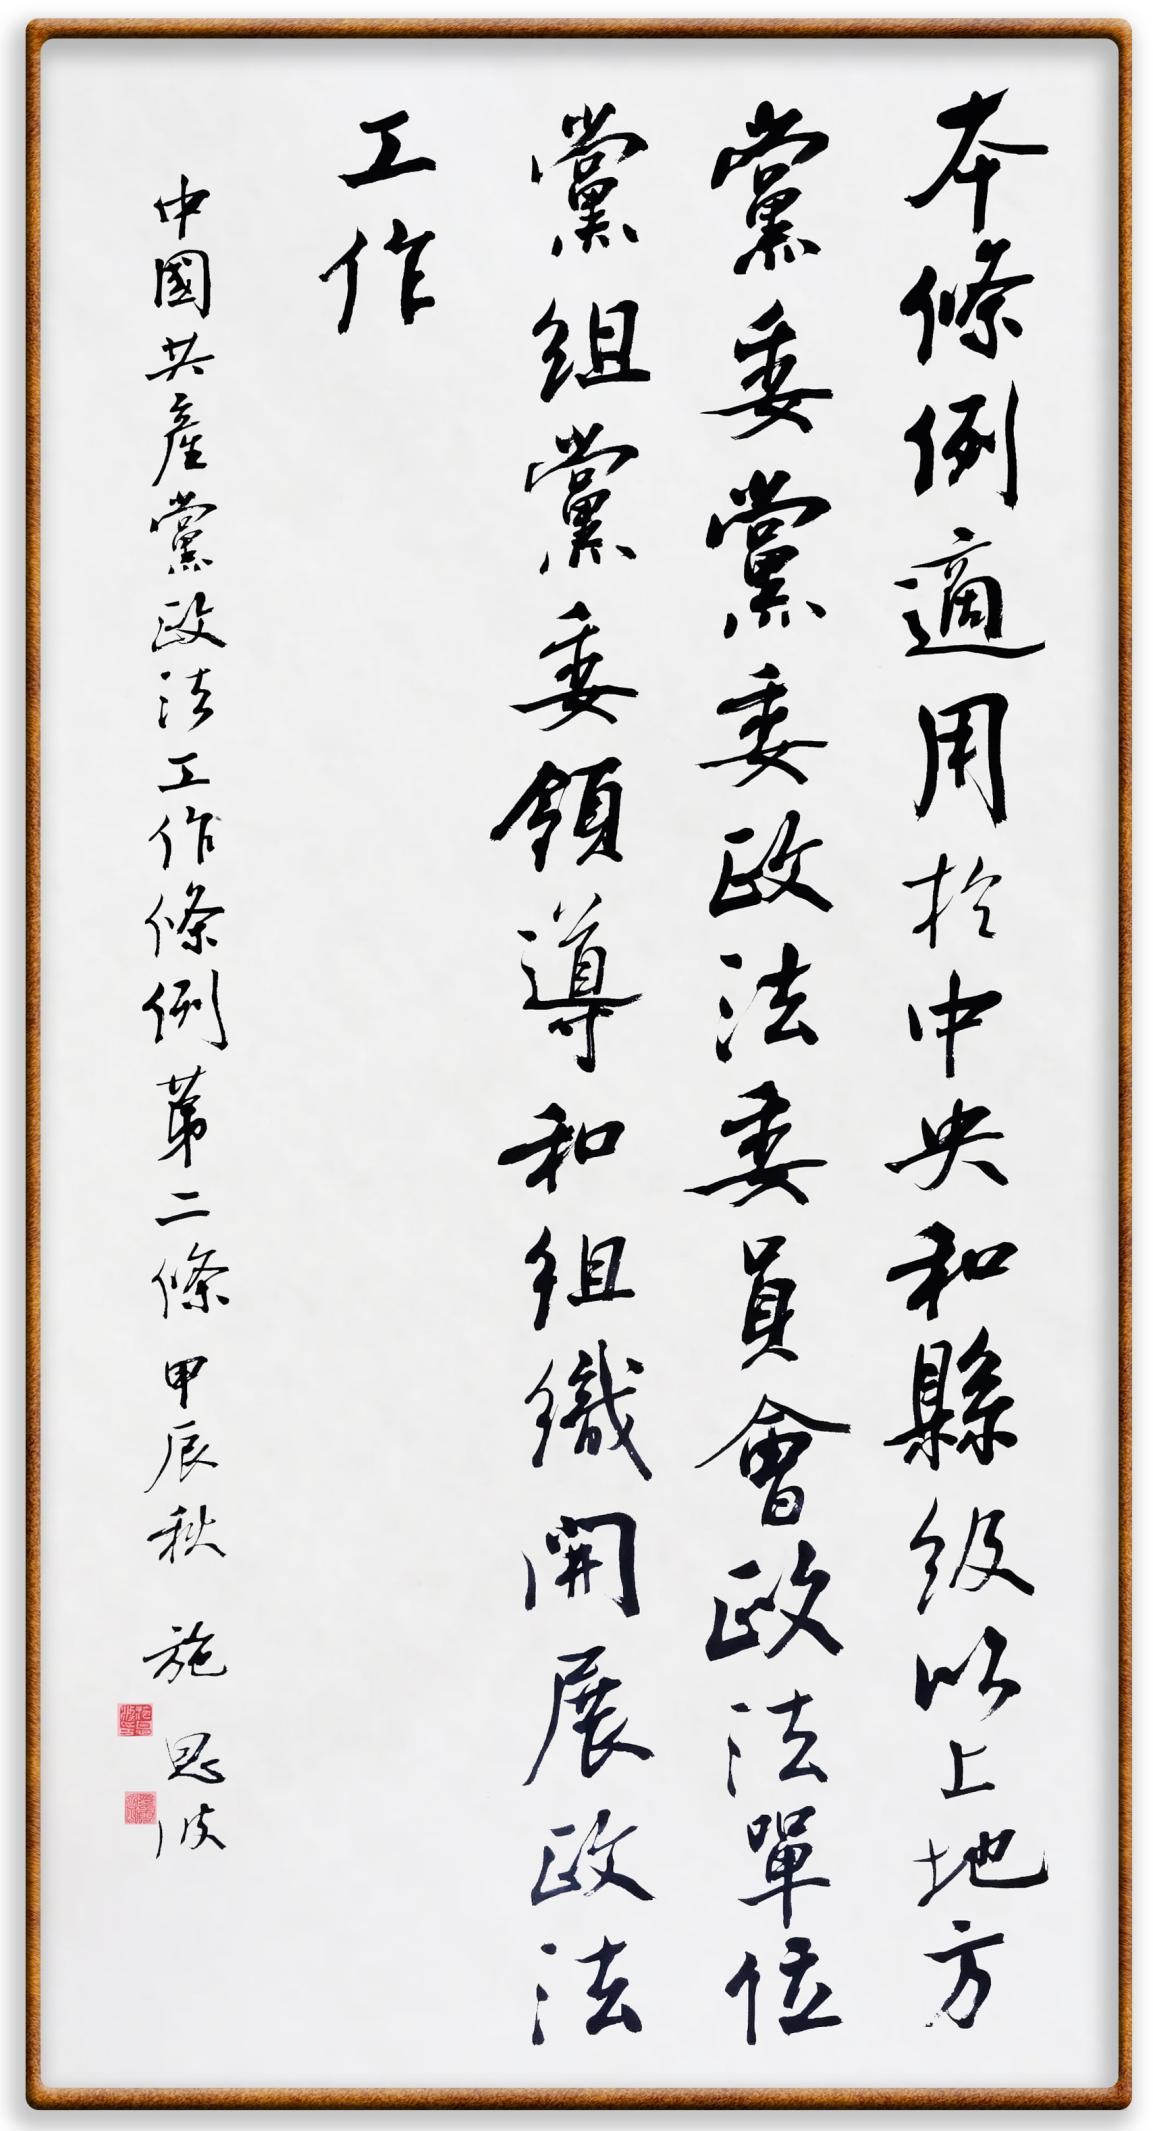 本條例適用於中央和縣級以上地方
黨委黨委政法委員會政法單位
黨組黨委領導和組織開展政法
工作
中國共產黨政法工作條例第二條 甲辰秋 施恩波